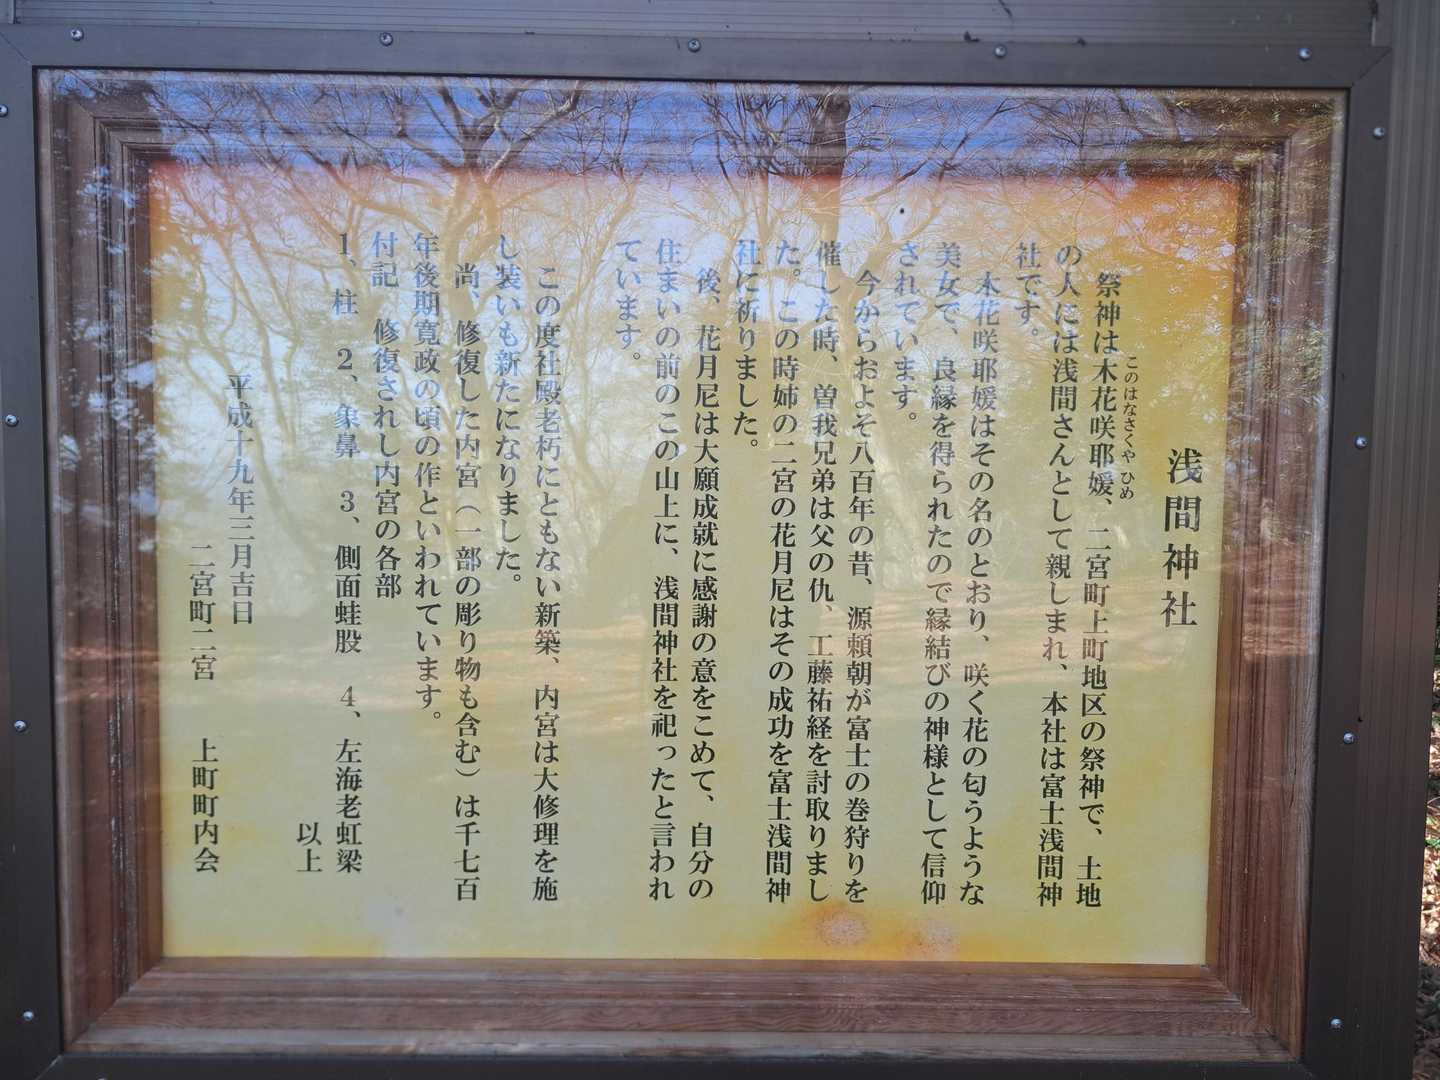 浅間神社
祭神は木花咲耶媛、二宮町上町地区の祭神で、土地
このはなさくや ひめ
の人には浅間さんとして親しまれ、本社は富士浅間神
社です。
木花咲耶媛はその名のとおり、咲く花の匂うような
美女で、良縁を得られたので縁結びの神様として信仰
されています。
今からおよそ八百年の昔、源頼朝が富士の巻狩りを
催した時、曽我兄弟は父の仇、工藤祐経を討取りまし
た。この時姉の二宮の花月尼はその成功を富士浅間神
社に祈りました。
後、花月尼は大願成就に感謝の意をこめて、自分の
住まいの前のこの山上に、浅間神社を祀ったと言われ
ています。
この度社殿老朽にともない新築、内宮は大修理を施
し装いも新たになりました。
尚、修復した内宮（一部の彫り物も含む）は千七百
年後期寛政の頃の作といわれています。
付記　修復されし内宮の各部
1、柱　2、象鼻　3、側面蛙股　4、左海老虹梁
以上
平成十九年三月吉日
二宮町二宮　上町町内会